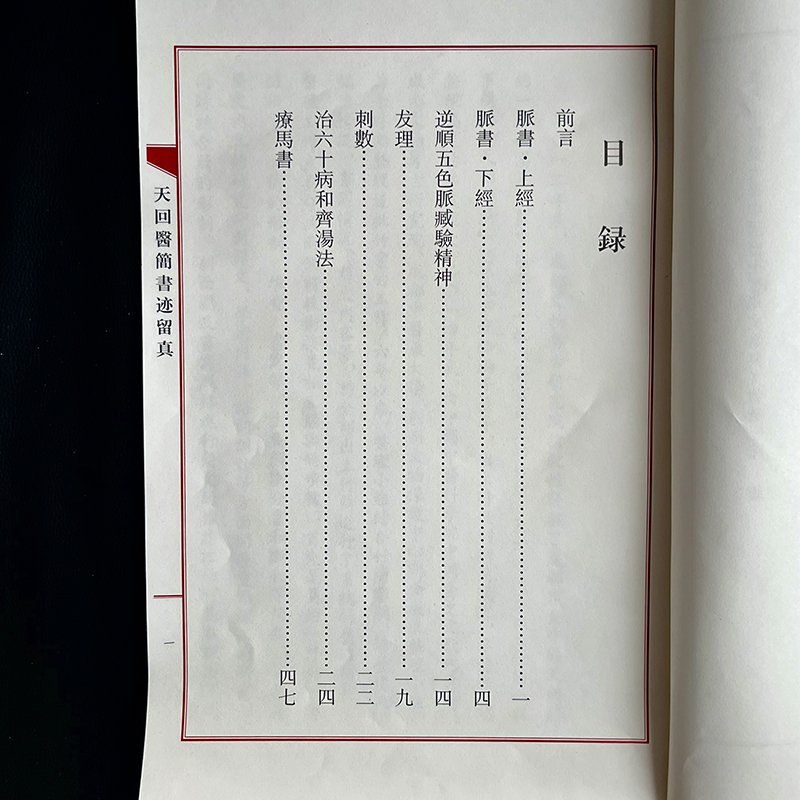 目録
前言
脈書·上經……一
脈書·下經……四
逆順五色脈臧驗精神……一四
犮理……一九
刺數……二二
治六十病和齊湯法……二四
療馬書……四七
天回醫簡書迹留真
一